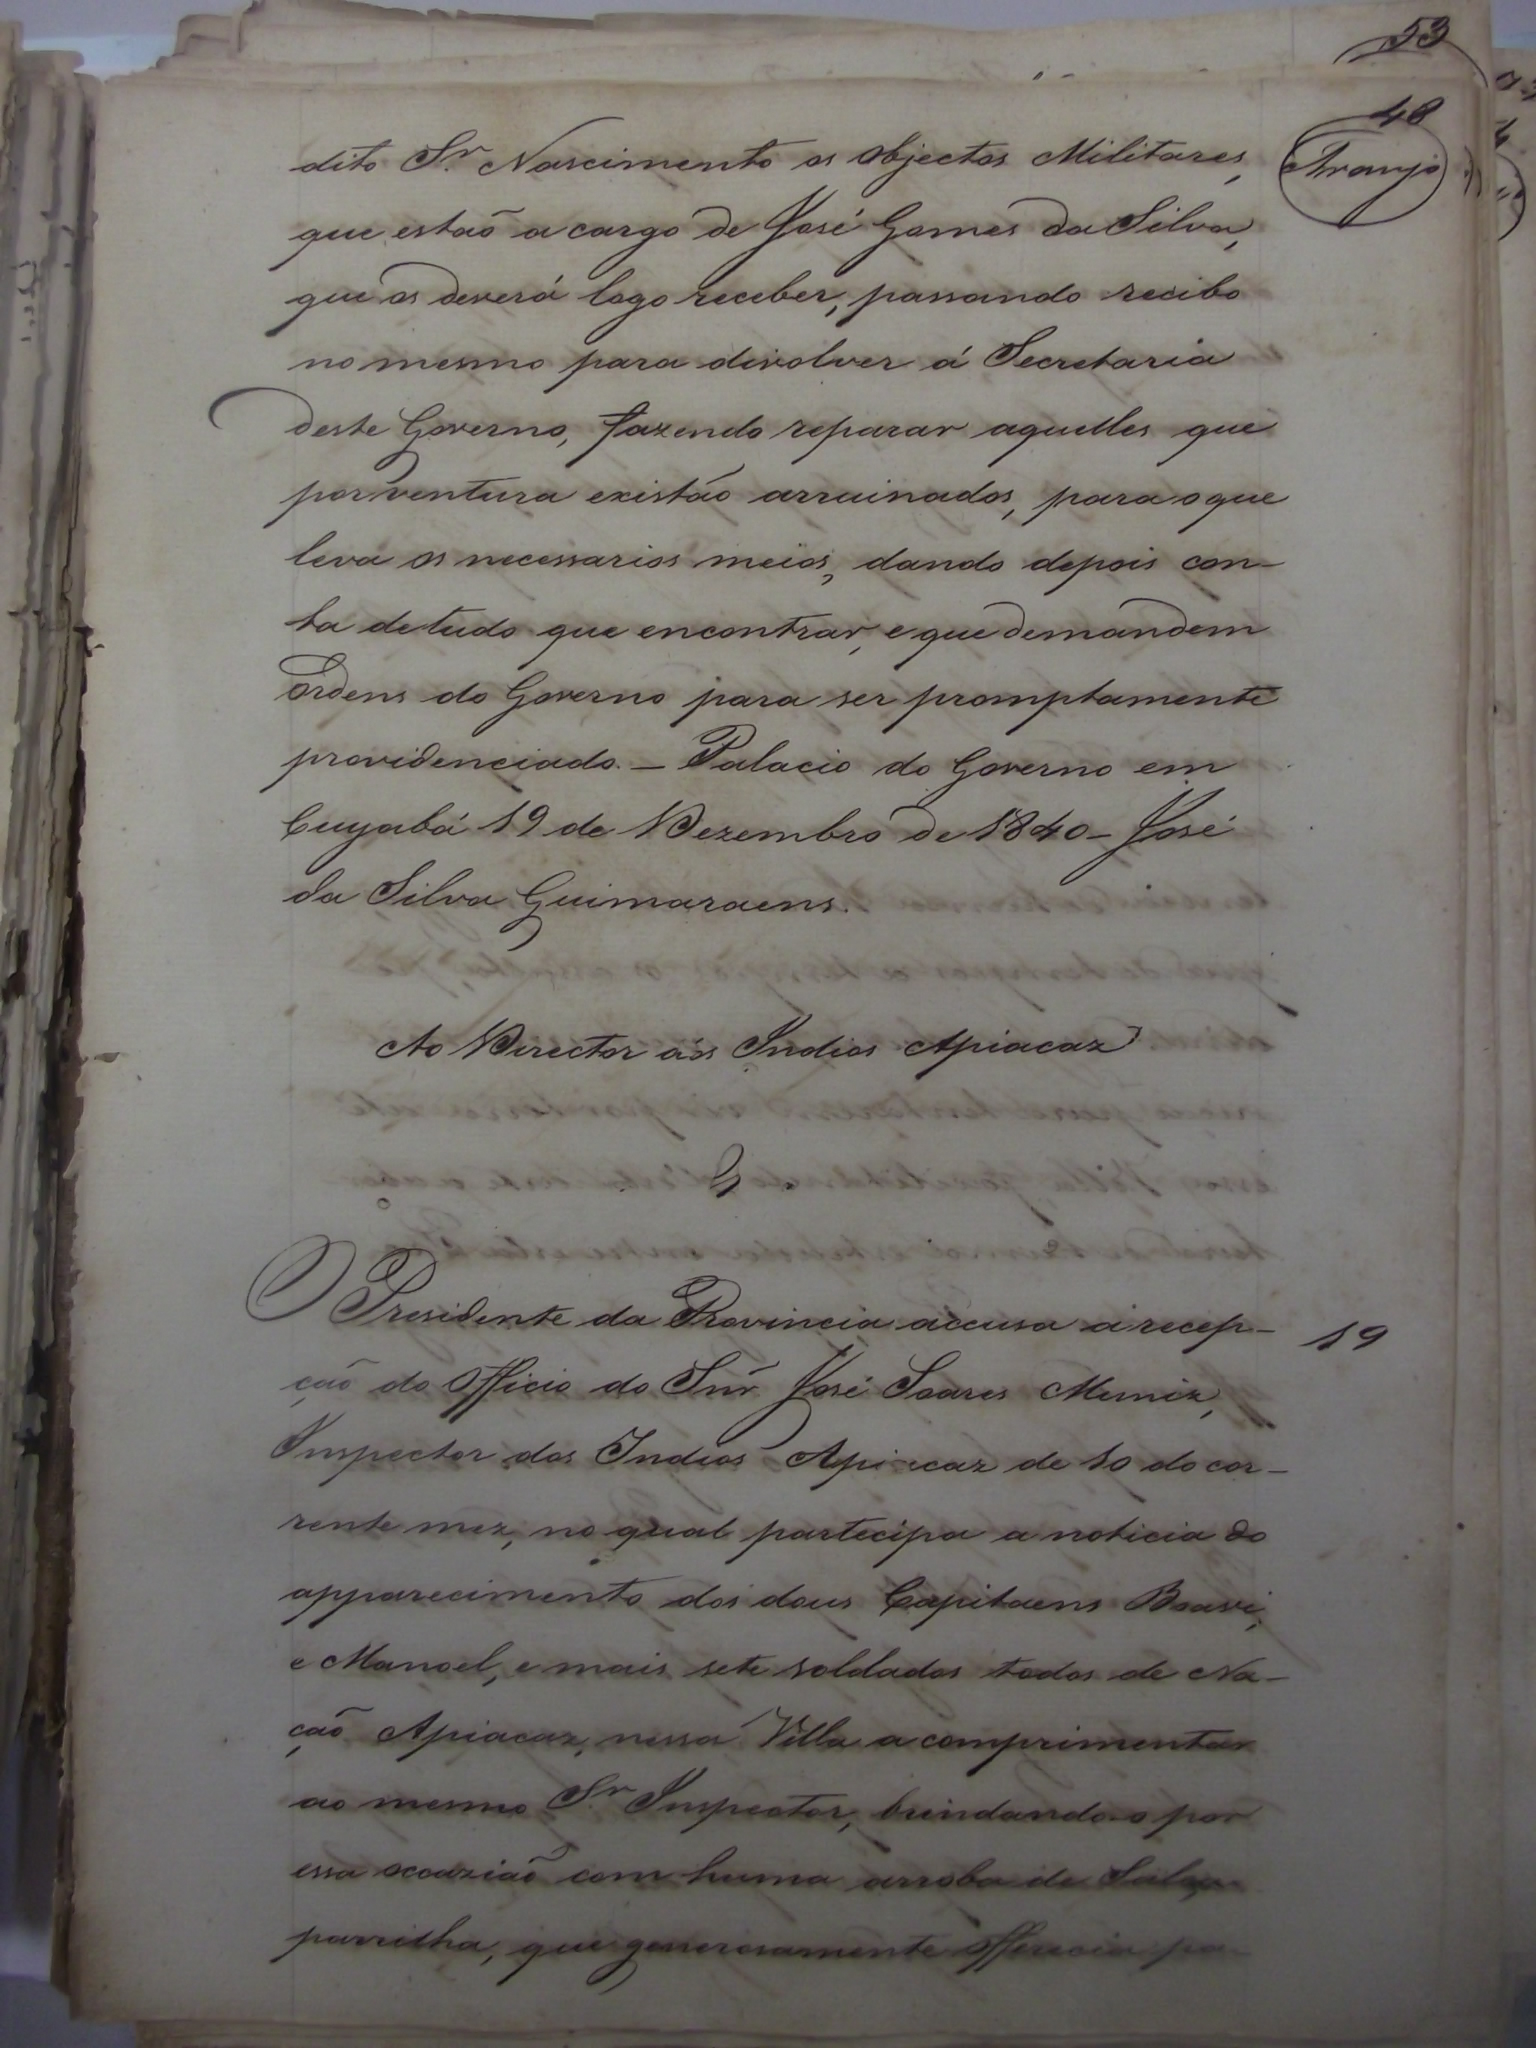 53
48
Araujo
dito Sr. Nascimento os objectos Militares,
que estaõ a cargo de José Gomes da Silva,
que os deverá logo receber, passando recibo
no mesmo para divolver á Secretaria
deste Governo, fazendo reparar aquelles que
porventura existão arruinados, para o que
leva os necessarios meios, dando depois con-
ta de tudo que encontrar, e que demandem
Ordens do Governo para ser promptamente
providenciado. — Palacio do Governo em
Cuyabá 19 de Dezembro de 1840 — José
da Silva Guimaraens.
Ao Director aós Indios Apiacaz
O Presidente da Provincia accusa a recep-
19
çaõ do Officio do Snr. José Soares Muniz,
Inspector dos Indios Apiacaz de 10 do cor-
rente mez, no qual partecipa a noticia do
apparecimento dos dous Capitaens
e Manoel, e mais sete soldados todos de Na-
çaõ Apiacaz, nessa Villa a comprimentar
ao mesmo Sr. Inspector, brindando-o por
essa occaziaõ com huma arroba de Salsa
parrilha, que generosamente offerecia pa-